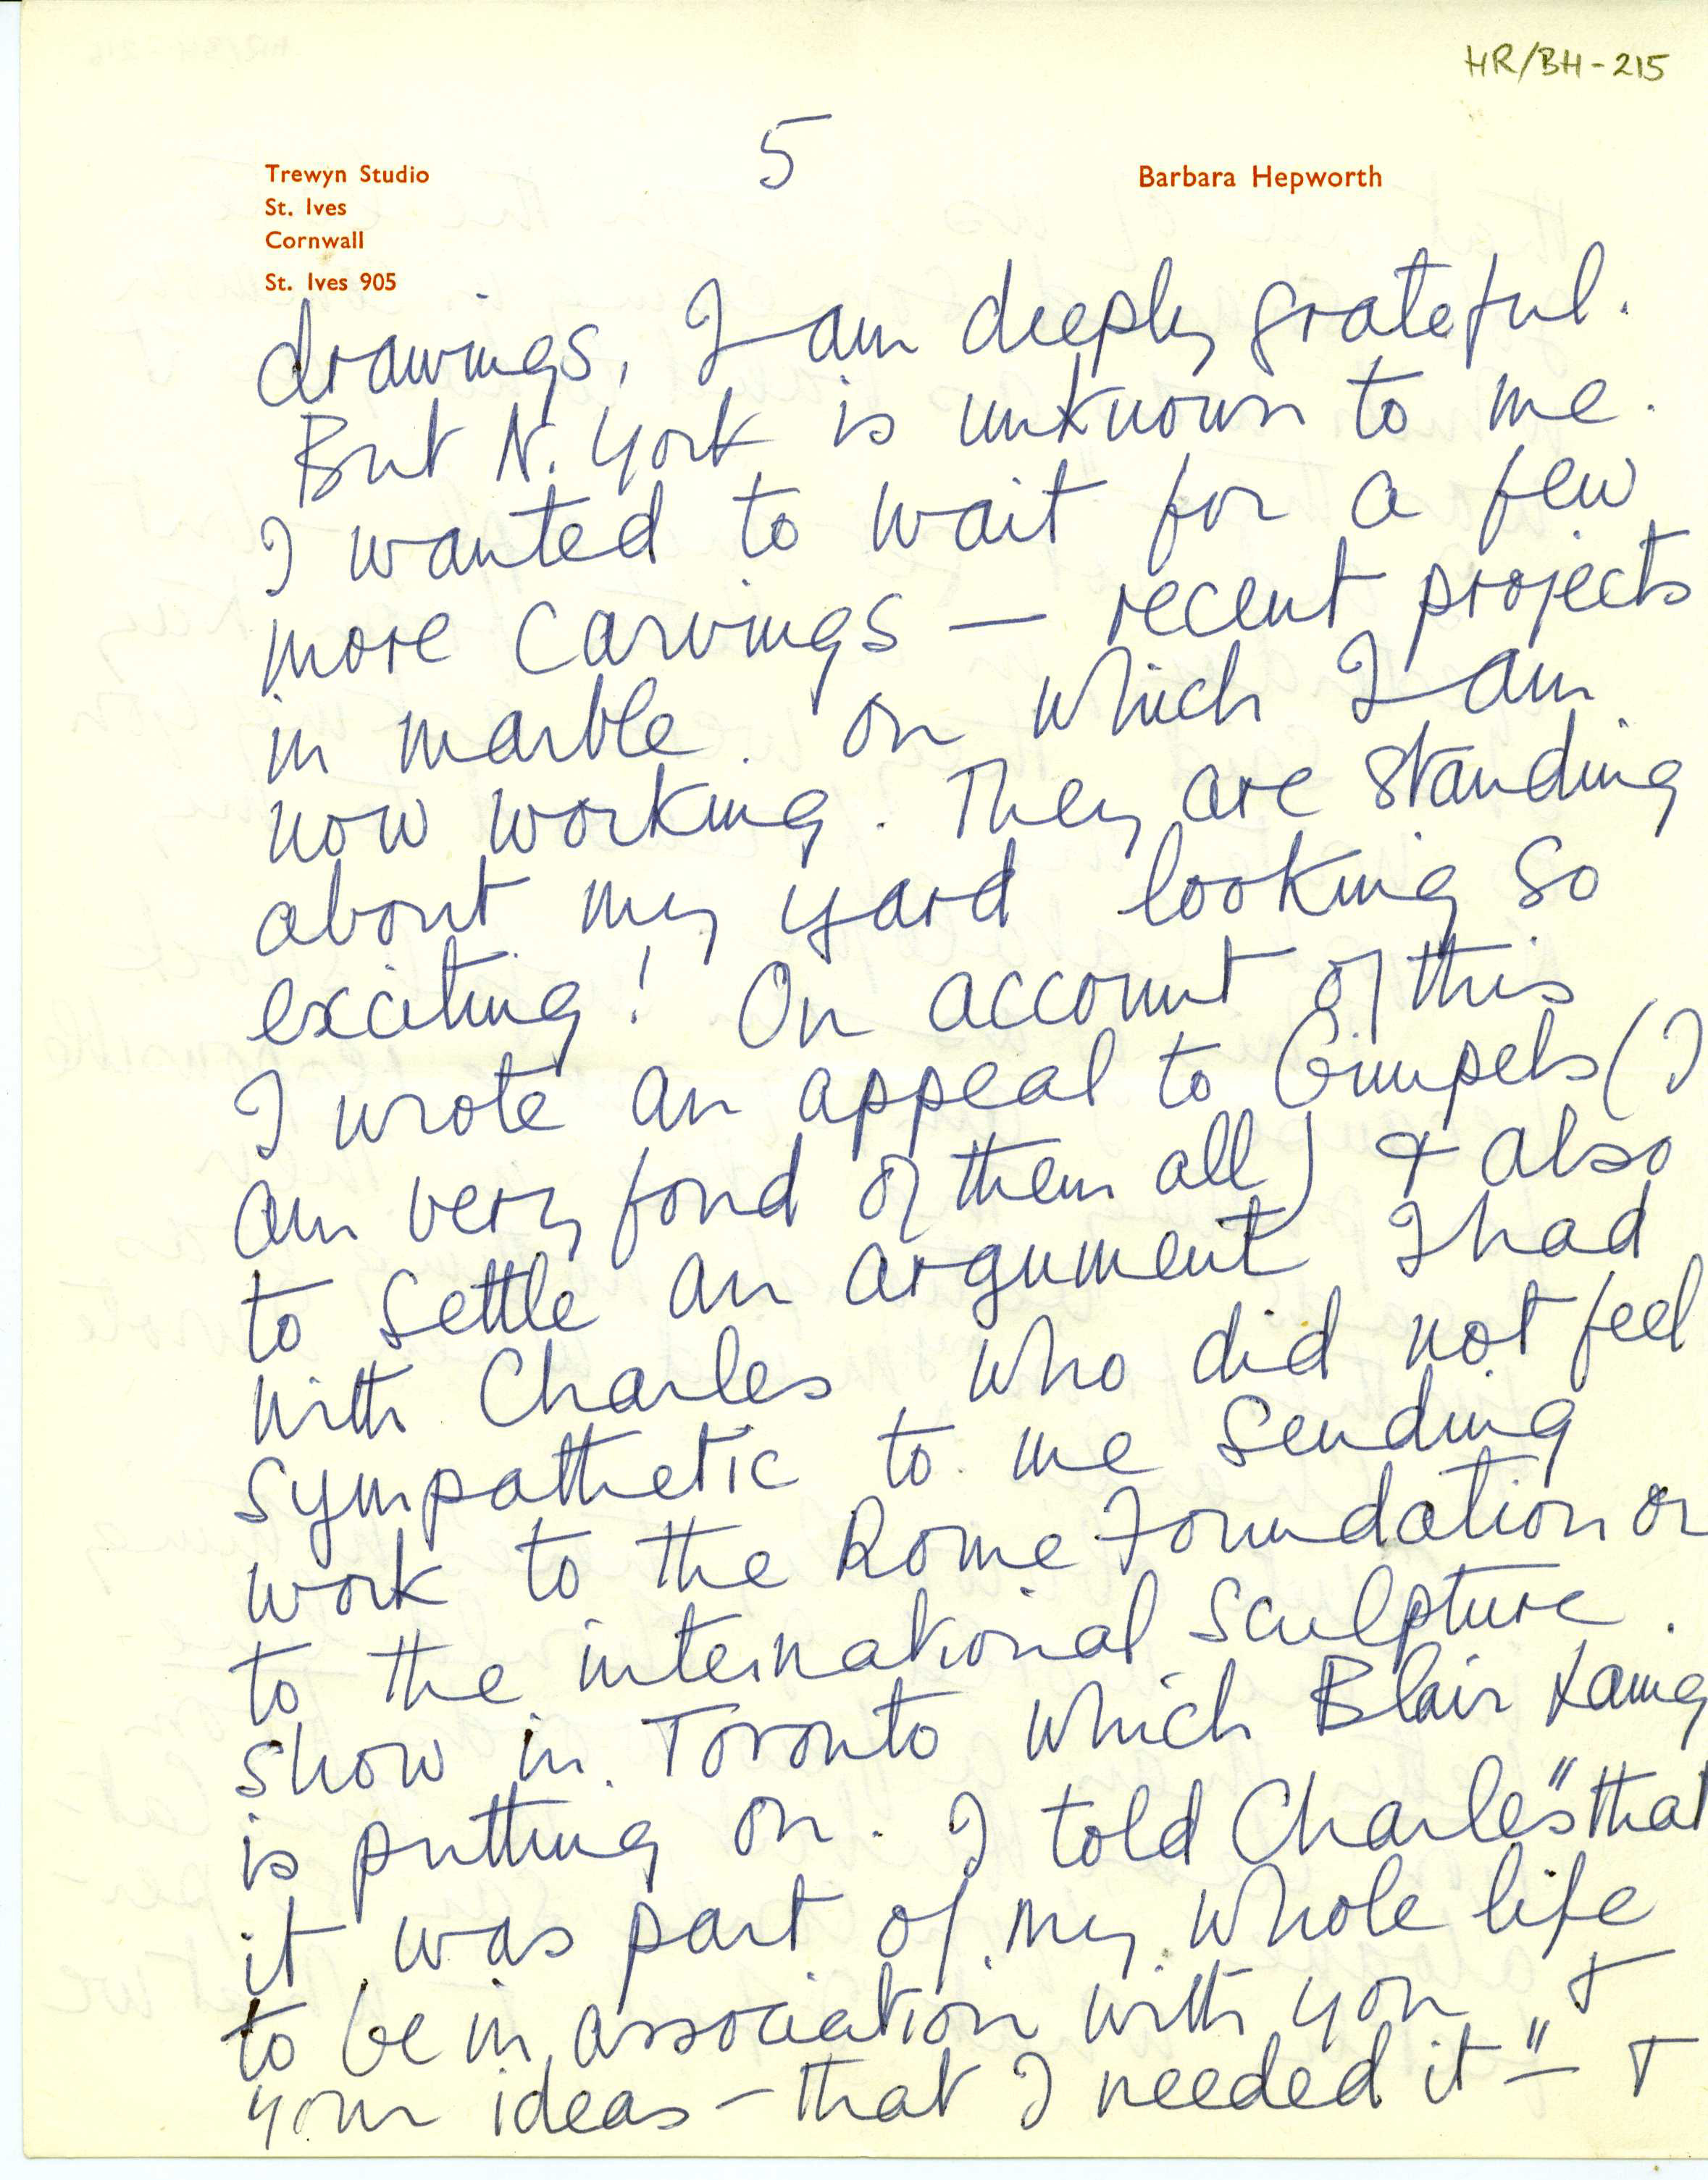 HR/BH-215
5
Trewyn Studio
St. Ives
Cornwall
St. Ives 905
Barbara Hepworth
drawings, I am deeply grateful.
But N. York is unknown to me.
I wanted to wait for a few
more carvings — recent projects
in marble on which I am
now working. They are standing
about my yard looking so
exciting! On account of this
I wrote an appeal to Gimpels (I
am very fond of them all) & also
to settle an argument I had
with Charles who did not feel
sympathetic to me sending
work to the Rome Foundation or
to the international Sculpture
show in Toronto which Blair Laing
is putting on. I told Charles "that
it was part of my whole life
to be in association with you &
your ideas – that I needed it" – &